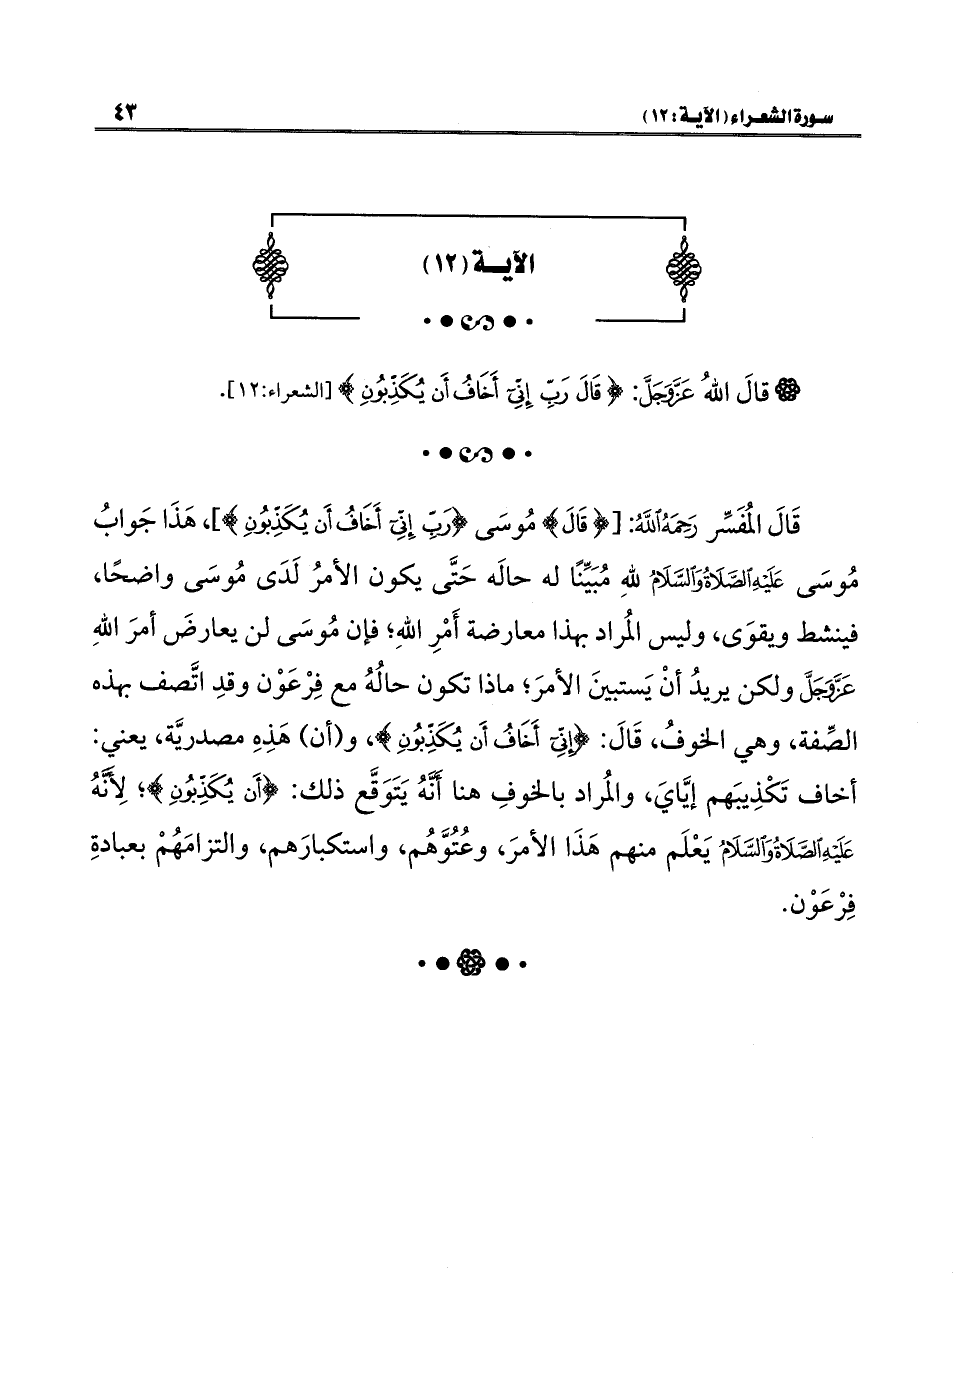 سورة الشعراء (الآية: ١٢) ٤٣
الآيــة (١٢)
قالَ اللهُ عَزَّوَجَلَّ: ﴿ قَالَ رَبِّ إِنِّيٓ أَخَافُ أَن يُكَذِّبُونِ ﴾ [الشعراء:١٢].
قَالَ المُفَسِّر رَحِمَهُ اللَّهُ: [﴿ قَالَ﴾ مُوسَى ﴿رَبِّ إِنِّيٓ أَخَافُ أَن يُكَذِّبُونِ ﴾]، هَذَا جَوابُ
مُوسَى عَلَيْهِ الصَّلَاةُ وَالسَّلَامُ للهِ مُبَيِّنًا له حالَه حَتَّى يكون الأمرُ لَدَى مُوسَى واضحًا،
فينشط ويقوَى، وليس المُراد بهذا معارضة أَمْرِ اللهِ؛ فإن مُوسَى لن يعارضَ أمرَ اللهِ
عَزَّوَجَلَّ ولكن يريدُ أنْ يَستبينَ الأمرَ؛ ماذا تكون حالُهُ مع فِرْعَوْن وقدِ اتَّصف بهذه
الصِّفة، وهي الخوفُ، قَالَ: ﴿إِنِّيٓ أَخَافُ أَن يُكَذِّبُونِ ﴾، و(أن) هَذِهِ مصدريَّة، يعني:
أخاف تَكْذِيبَهم إيَّايَ، والمُراد بالخوفِ هنا أَنَّهُ يَتَوَقَّع ذلك: ﴿أَن يُكَذِّبُونِ ﴾؛ لِأَنَّهُ
عَلَيْهِ الصَّلَاةُ وَالسَّلَامُ يَعْلَم منهم هَذَا الأمرَ، وعُتُوَّهُم، واستكبارَهم، والتزامَهُمْ بعبادةِ
فِرْعَوْن.